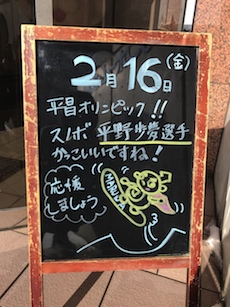 2月16日(金)
平昌オリンピック!!
スノボ 平野歩夢選手
かっこいいですね!
応援
しましょう